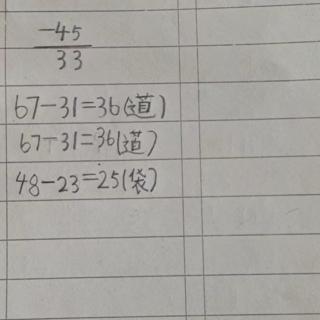 -45
33
67-31=36(道)
67-31=36(道)
48-23=25(袋)